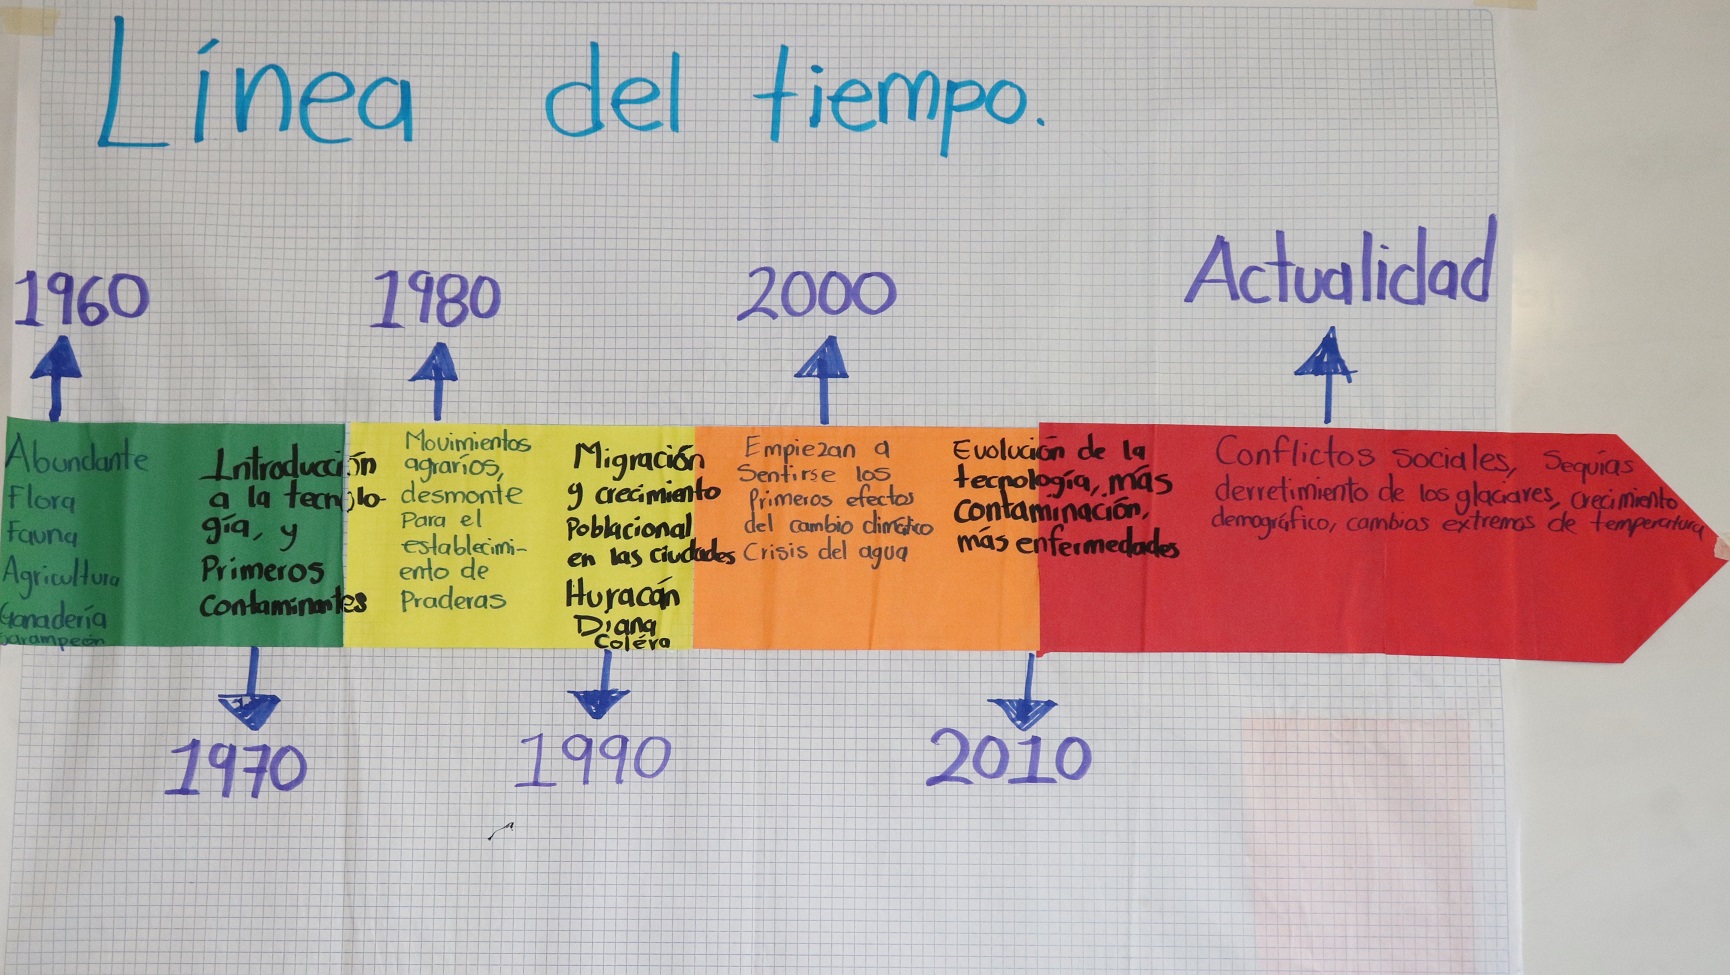 Línea del tiempo.
1960
1980
2000
Actualidad
Abundante
Flora
Fauna
Agricultura
Ganadería
Sarampeón
Introducción
a la tecnolo-
gía, y
Primeros
Contaminantes
Movimientos
agrarios,
desmonte
Para el
establecimi-
ento de
Praderas
Migración
y crecimiento
Poblacional
en las ciudades
Huracán
Diana
Coléra
Empiezan a
Sentirse los
Primeros efectos
del cambio climático
Crisis del agua
Evolución de la
tecnología, más
contaminación,
más enfermedades
Conflictos sociales, Sequías
derretimiento de los glaciares, crecimiento
demográfico, cambios extremos de temperatura
1970
1990
2010